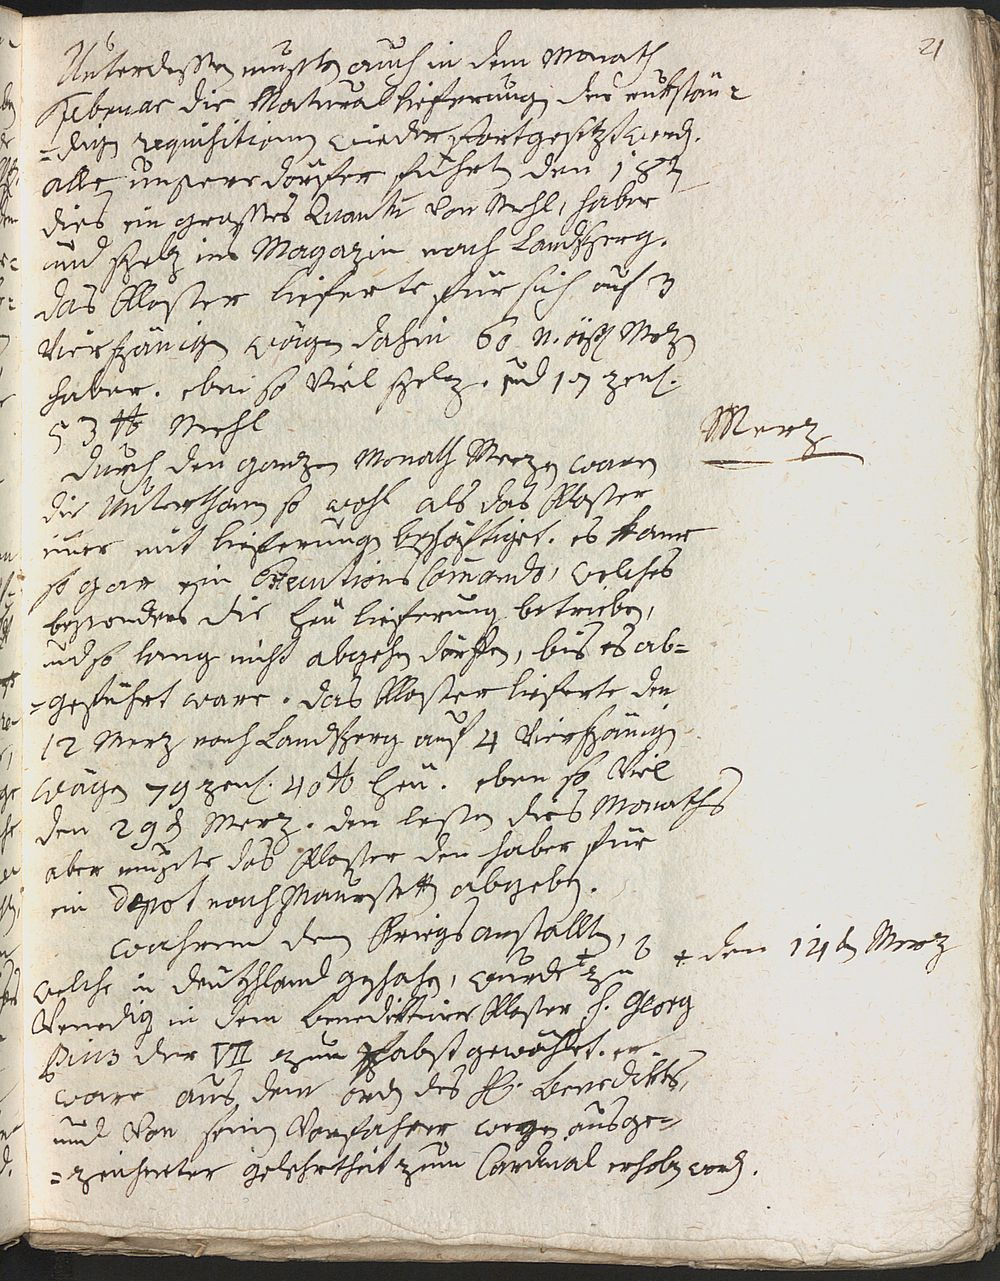 21
Unterdessen musste auch in dem Monath
Februar die Naturallieferung der rükstän=
=digen requisitionen wieder fortgesetzt werd.
alle unsere dörfer führten den 18t
dies ein grosses Quantu von Mehl, haber
und fesez ins Magazin nach Landsberg.
das Kloster lieferte für sich auf 3
vierspänigen wägen dahin 60 Mez
haber. eben so viel . und 17 zent.
53 ℔ Mehl
Merz
durch den ganzen Monath Merzen waren
die Unterthanen so wohl als das Kloster
imer mit lieferung beschäftiget. es kame
so gar ein Executions Comando, welches
besonders die heü lieferung betrieben,
und so lang nicht abgehen dörffen, bis es ab=
=geführt ware. das Kloster lieferte den
12 Merz nach Landsberg auf 4 vierspänigen
wägen 79 zent. 40 ℔ heü. eben so viel
den 29t Merz. den lesten dies Monaths
aber muste das Kloster den haber für
ein Depot nach Maurstetten abgeben.
während den Kriegsanstallten,
welche in deütschland geschahen, wurde + zu
+ den 14ten Merz
Venedig in dem benediktiner Kloster s. Georg
Pius der VII zum Pabst gewählet. er
ware aus dem orden des H. Benedikts,
und von seinem Vorfahrer wegen ausge=
=zeichneter gelehrtheit zum Cardinal erhoben word.